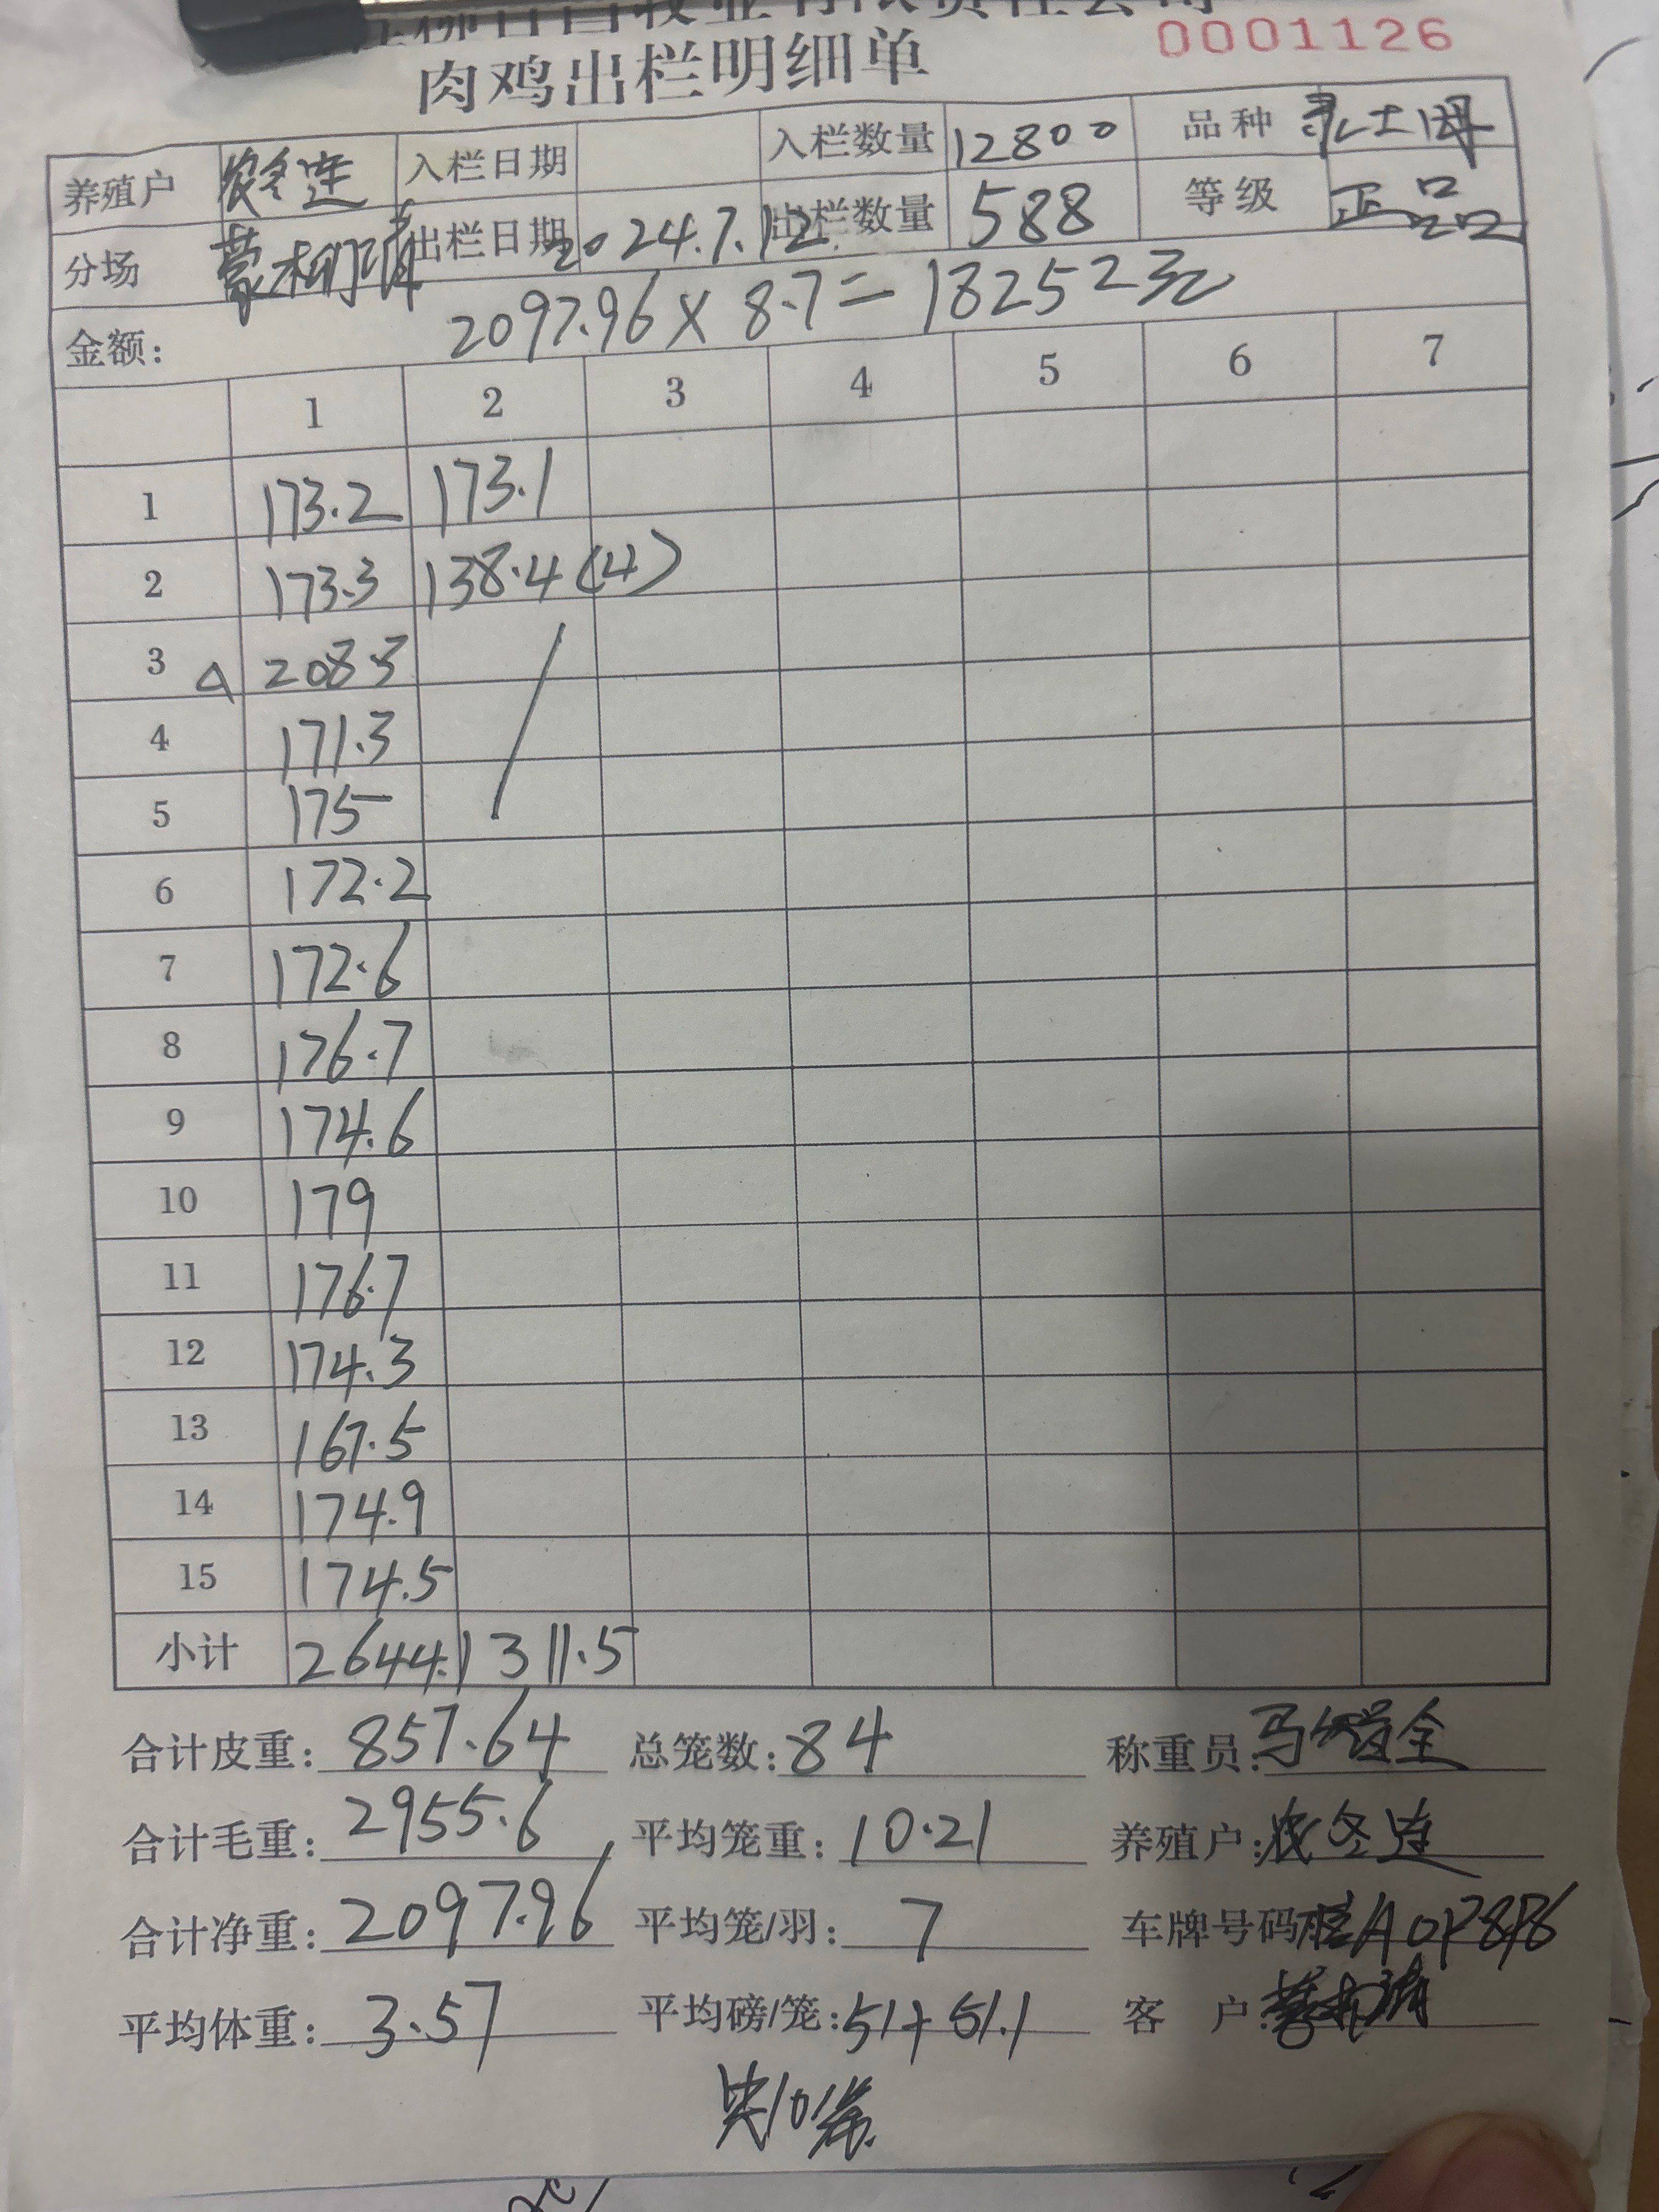 牧业有限责任公司
肉鸡出栏明细单
0001126
养殖户 农冬连 入栏日期 入栏数量 12800 品种 土
分场 蒙柳清 出栏日期 2024.7.12 出栏数量 588 等级 正品
金额: 2097.96 × 8.7 = 18252元
1 2 3 4 5 6 7
1 173.2 173.1
2 173.3 138.4 (4)
3 △ 208.3
4 171.3
5 175
6 172.2
7 172.6
8 176.7
9 174.6
10 179
11 176.7
12 174.3
13 167.5
14 174.9
15 174.5
小计 2644.1 311.5
合计皮重: 857.64 总笼数: 84 称重员: 马全
合计毛重: 2955.6 平均笼重: 10.21 养殖户: 农冬连
合计净重: 2097.96 平均笼/羽: 7 车牌号码: 桂A
平均体重: 3.57 平均磅/笼: 51+51.1 客 户:
共101笼